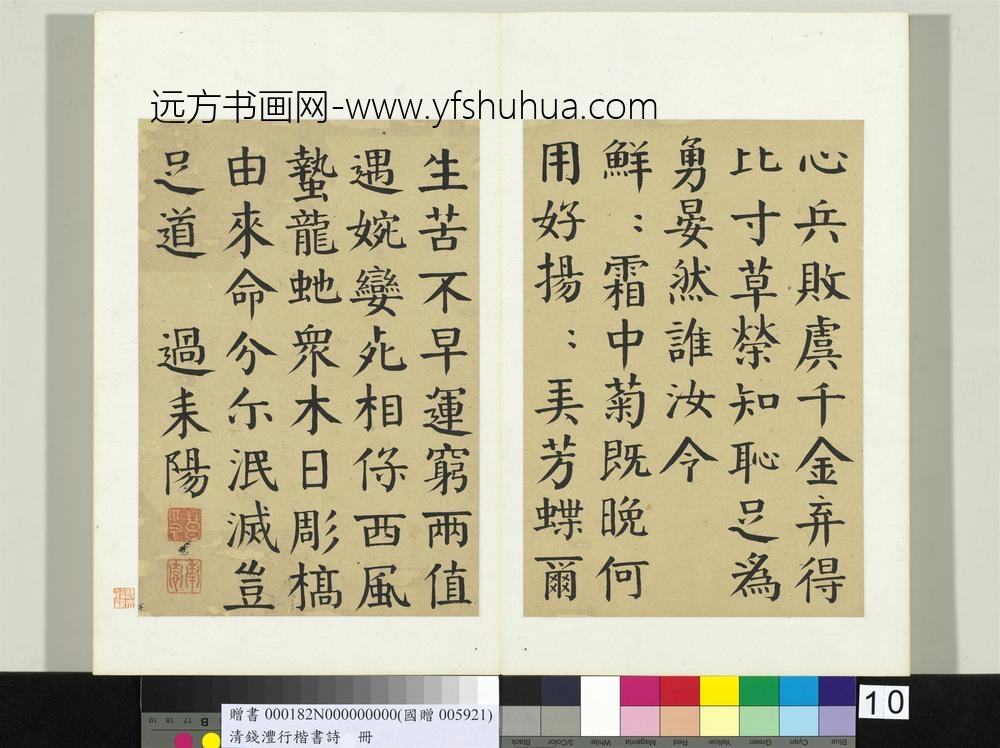 远方书画网-www.yfshuhua.com
心兵敗虞千金弃得
比寸草榮知恥足為
勇晏然誰汝令
鮮：霜中菊既晚何
用好揚：美芳蝶爾
生苦不早運窮兩值
遇婉孌死相保西風
蟄龍虵眾木日彫槁
由來命分尔泯滅豈
足道　過耒陽
10
贈書 000182N000000000(國贈 005921)
清錢灃行楷書詩　冊
Black
3/Color
White
Magenta
Red
Yellow
Green
Cyan
Blue
19 18 17 16 B